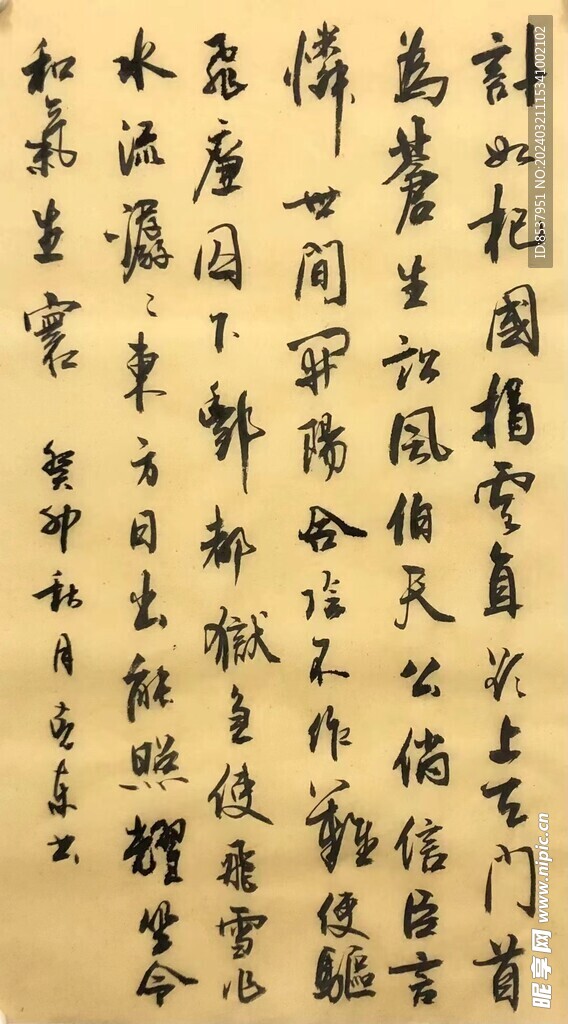 計如杞國揖雲直欲上天門首
為蒼生訟風伯天公倘信臣言
憐世間開陽合陰不作難便驅
飛廉囚下酆都獄急使飛雪作
水流潺〻東方日出能照耀坐令
和氣生寰 癸卯秋月 東書
ID:8537951 NO:20240321115341002102
昵享网 www.nipic.cn